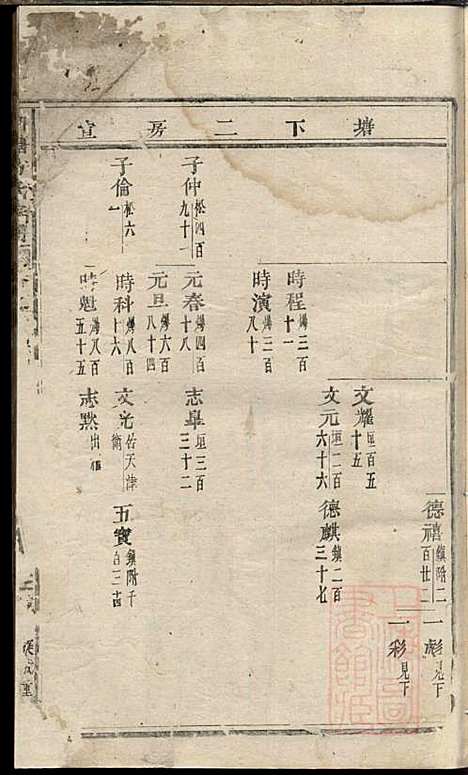 塘下二房宣
德禧 鎮附二百廿二
一彪 見下
一彩 見下
文耀 垣百五十五
文元 垣二百六十六
德麒 鎮二百三十七
時程 爆三百十一
時演 爆三百八十
子仲 松四百九十一
元春 爆四百十八
志皐 垣三百三十二
元旦 爆六百八十四
子倫 松六一
時科 爆八百十六
文光 佑天津衛
五寳 鎮附千
時魁 爆八百五十五
志黙 出